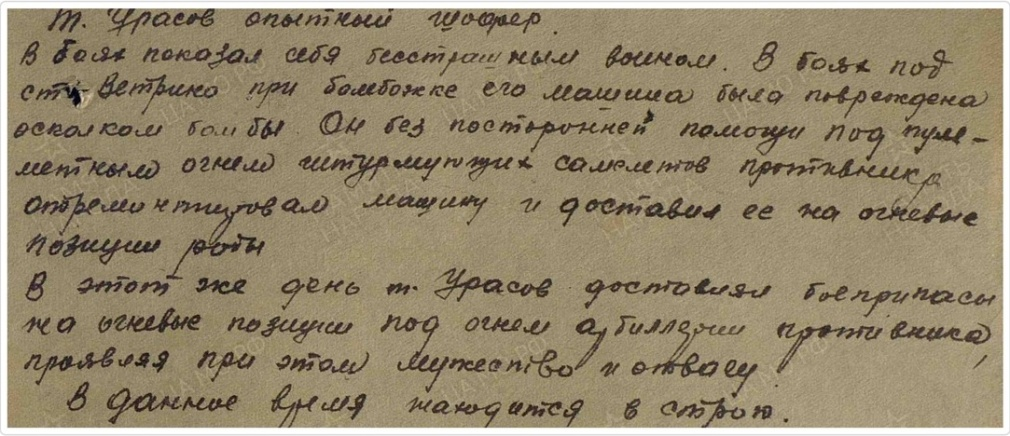 т. Урасов опытный шофер.
В боях показал себя бесстрашным воином. В боях под
ст. Ветрино при бомбожке его машина была повреждена
осколком бомбы. Он без посторонней помощи под пуле-
метным огнем штурмующих самолетов противника
отремонтировал машину и доставил ее на огневые
позиции роты
В этот же день т. Урасов доставлял боеприпасы
на огневые позиции под огнем артиллерии противника,
проявляя при этом мужество и отвагу
В данное время находится в строю.